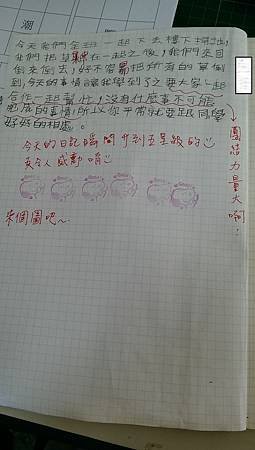 今天我們全班一起下去樓下掃地,
我們把葉集中在一起之後,我們來回
倒來倒去,好不容易把所有的葉倒
到,今天的事情讓我學到了要大家一起
合作一起幫忙,沒有什麼事不可能
完成的事情,所以你平常就要跟同學
好好的相處。
團結力量大啊!
今天的日記瞬間升到五星級的
安令人感動唷
來個圖吧~